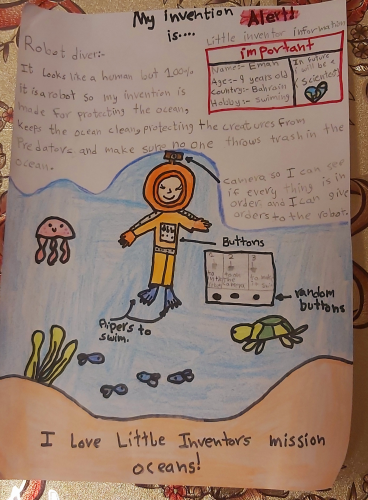 My invention Alert!
is....
Little inventor information
important
Name:- Eman
Ages:- 9 years old
Country:- Bahrain
Hobby:- Swiming
In future
I will be a
Scientest
Robot diver:-
It looks like a human but 100%
It is a robot so my invention is
made for protecting the ocean,
keeps the ocean clean, protecting the creatures from
Predators and make sure no one throws trash in the
ocean.
camera so I can see
if every thing is in
order and I can give
orders to the robot.
Buttons
1 2 3
random
buttons
flipers to
swim.
I Love Little Inventors mission
oceans!